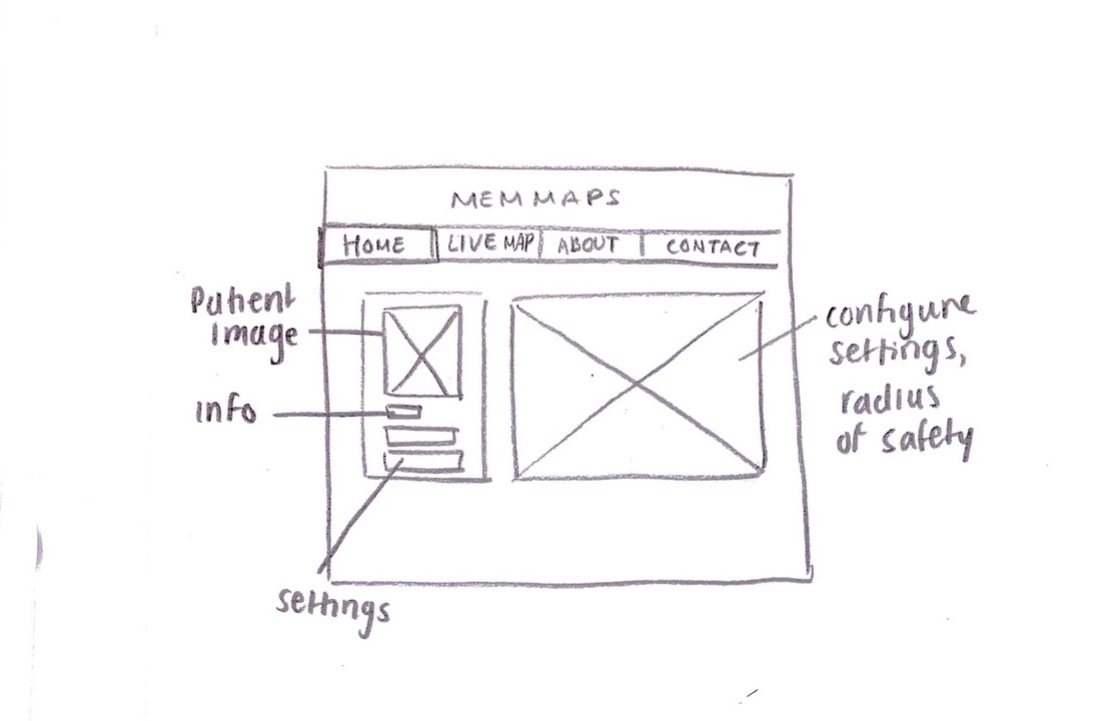 MEM MAPS
HOME
LIVE MAP
ABOUT
CONTACT
Patient
Image
info
settings
configure
settings,
radius
of safety